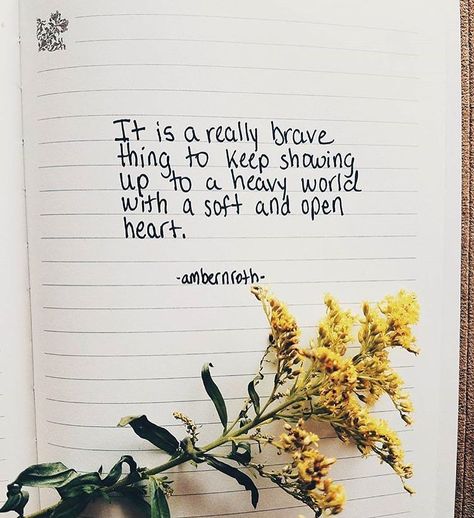 It is a really brave
thing to keep showing
up to a heavy world
with a soft and open
heart.
-ambernroth-